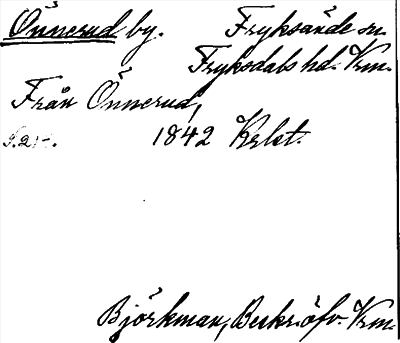 Önnerud by. Fryksände sn.
Fryksdals hd. Vrm.
Från Önnerud,
S. 217. 1842 Krlst.
Björkman, Beskr. öfv. Vrm.